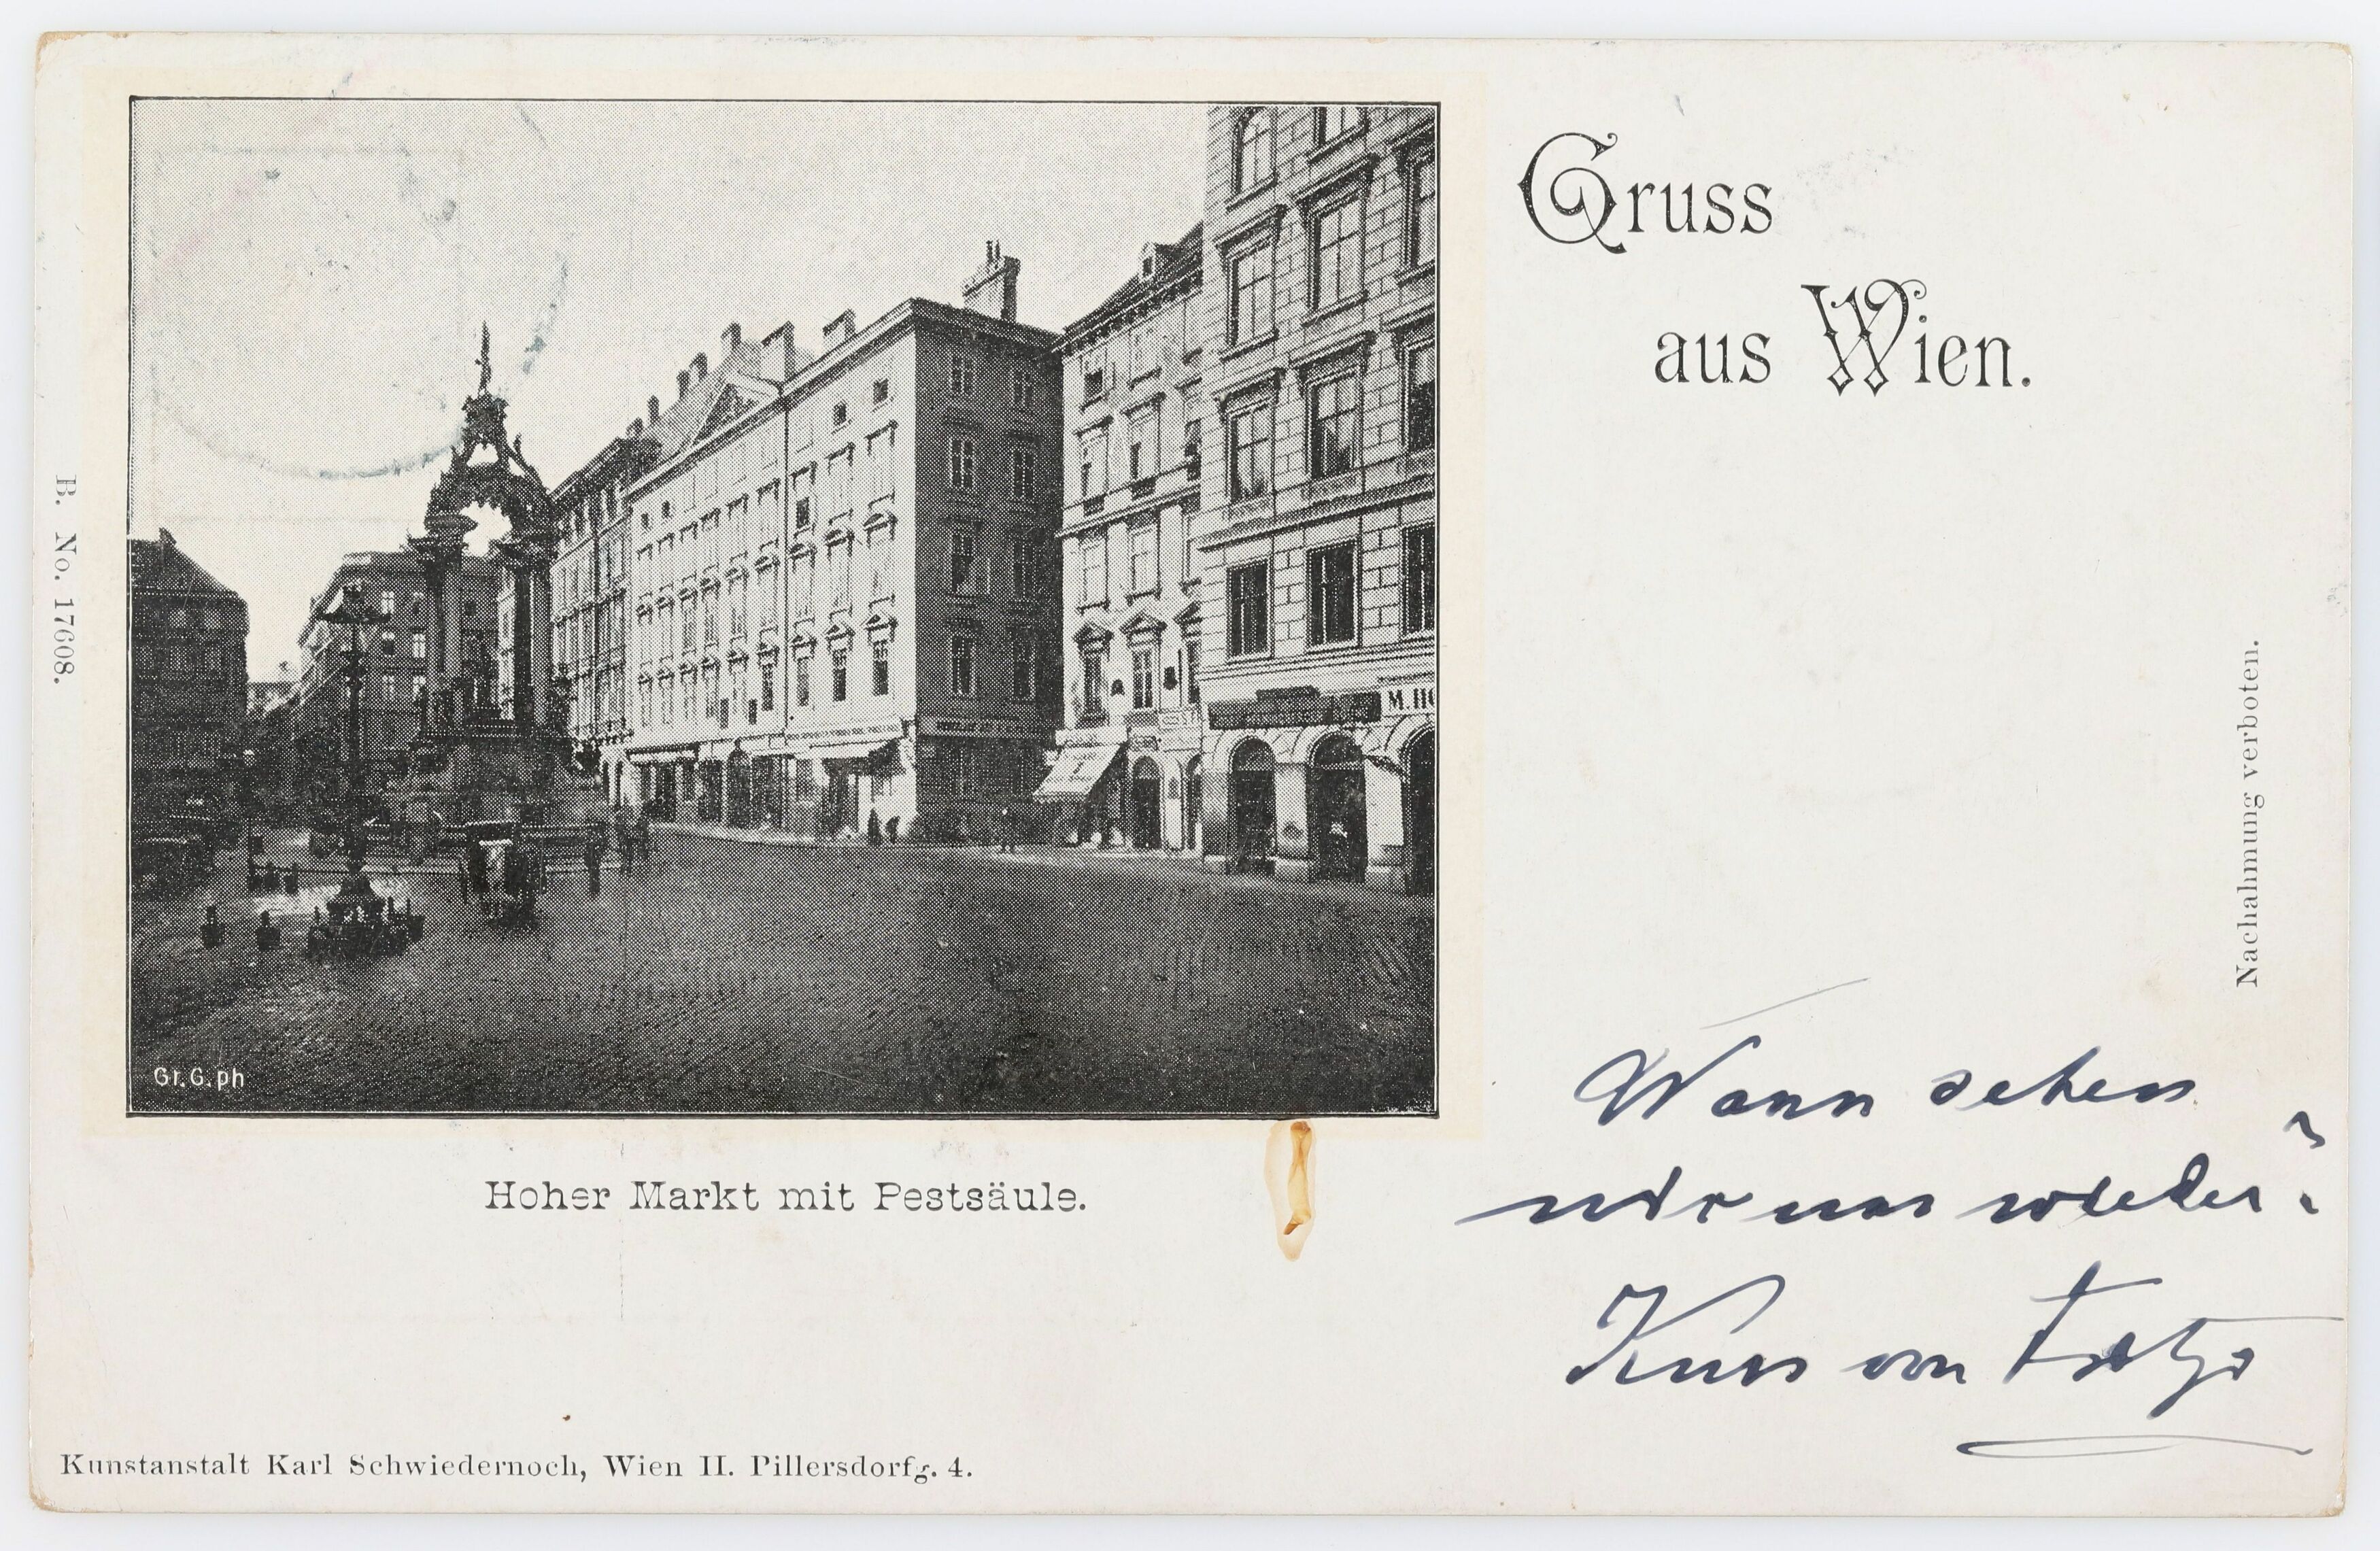 Gruss
aus Wien.
B. No. 17608.
M. HO
Gr. G. ph
Nachahmung verboten.
Hoher Markt mit Pestsäule.
Wann sehen
wir uns wieder?
Kuss von
Kunstanstalt Karl Schwiedernoch, Wien II. Pillersdorfg. 4.